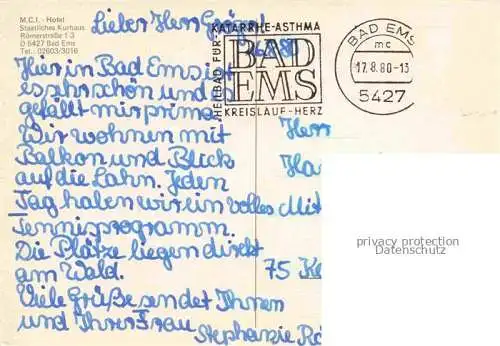 M.C.I. - Hotel
Staatliches Kurhaus
Römerstraße 1-3
D 5427 Bad Ems
Tel.: 02603/3016
Lieber Herr
HEILBAD FÜR
KATARRHE-ASTHMA
BAD
EMS
KREISLAUF-HERZ
BAD EMS
mc
17.8.80-13
5427
Hier in Bad Ems ist
es sehr schön und es
gefällt mir prima.
Wir wohnen mit
Balkon und Blick
auf die Lahn. Jeden
Tag haben wir ein volles
Tennisprogramm.
Die Plätze liegen direkt
am Wald.
Viele Grüße sendet Ihnen
und Ihrer Frau Stephanie
Herr
Ha
Mit
75 Ka
privacy protection
Datenschutz